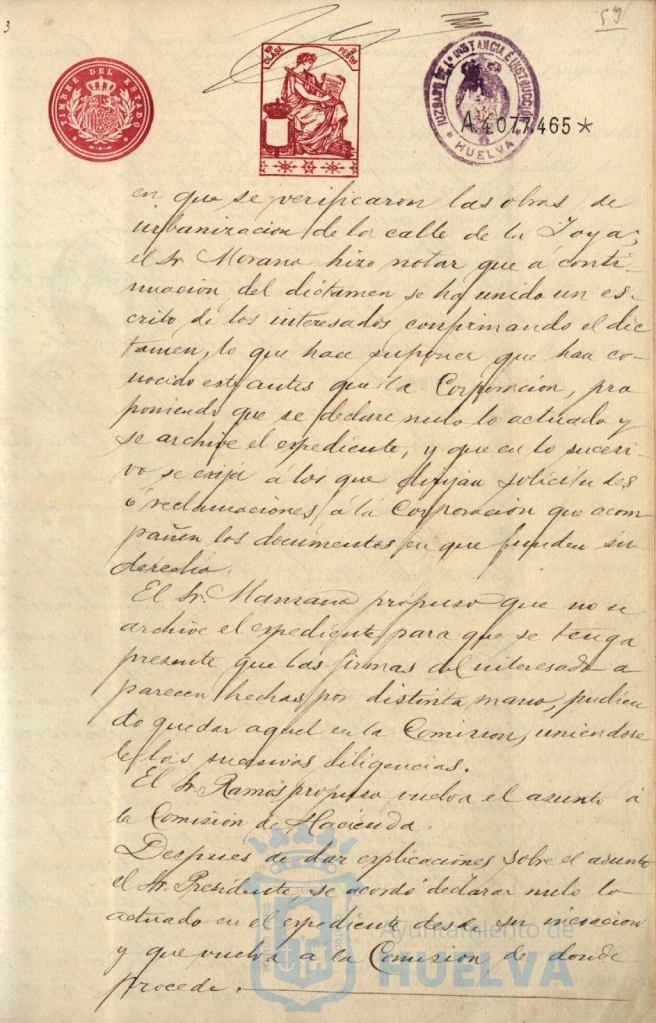 3
59
TIMBRE DEL ESTADO
CLASE
PESETAS
JUZGADO DE 1ª INSTANCIA É INSTRUCCION
HUELVA
A.4.077.465*
en que se verificaron las obras de
urbanizacion de la calle de la Joya;
el Sr Morano hizo notar que á conti-
nuacion del dictamen se ha unido un es-
crito de los interesados confirmando el dic
tamen, lo que hace suponer que han co-
nocido este antes que la Corporación, pro
poniendo que se declare nulo lo actuado y
se archive el expediente, y que en lo sucesi-
vo se exija á los que dirijan solicitudes
ó reclamaciones á la Corporación que acom
pañen los documentos en que funden su
derecho.
El Sr. Manzano propuso que no se
archive el expediente para que se tenga
presente que las firmas del interesado a
parecen hechas por distinta mano, pudien
do quedar aquel en la Comision, uniendose
le las sucesivas diligencias.
El Sr. Ramos propuso vuelva el asunto á
la Comisión de Hacienda.
Despues de dar explicaciones sobre el asunto
el Sr. Presidente, se acordó declarar nulo lo
actuado en el expediente desde su incoacion
y que vuelva á la Comision de donde
procede.
Ayuntamiento de
HUELVA